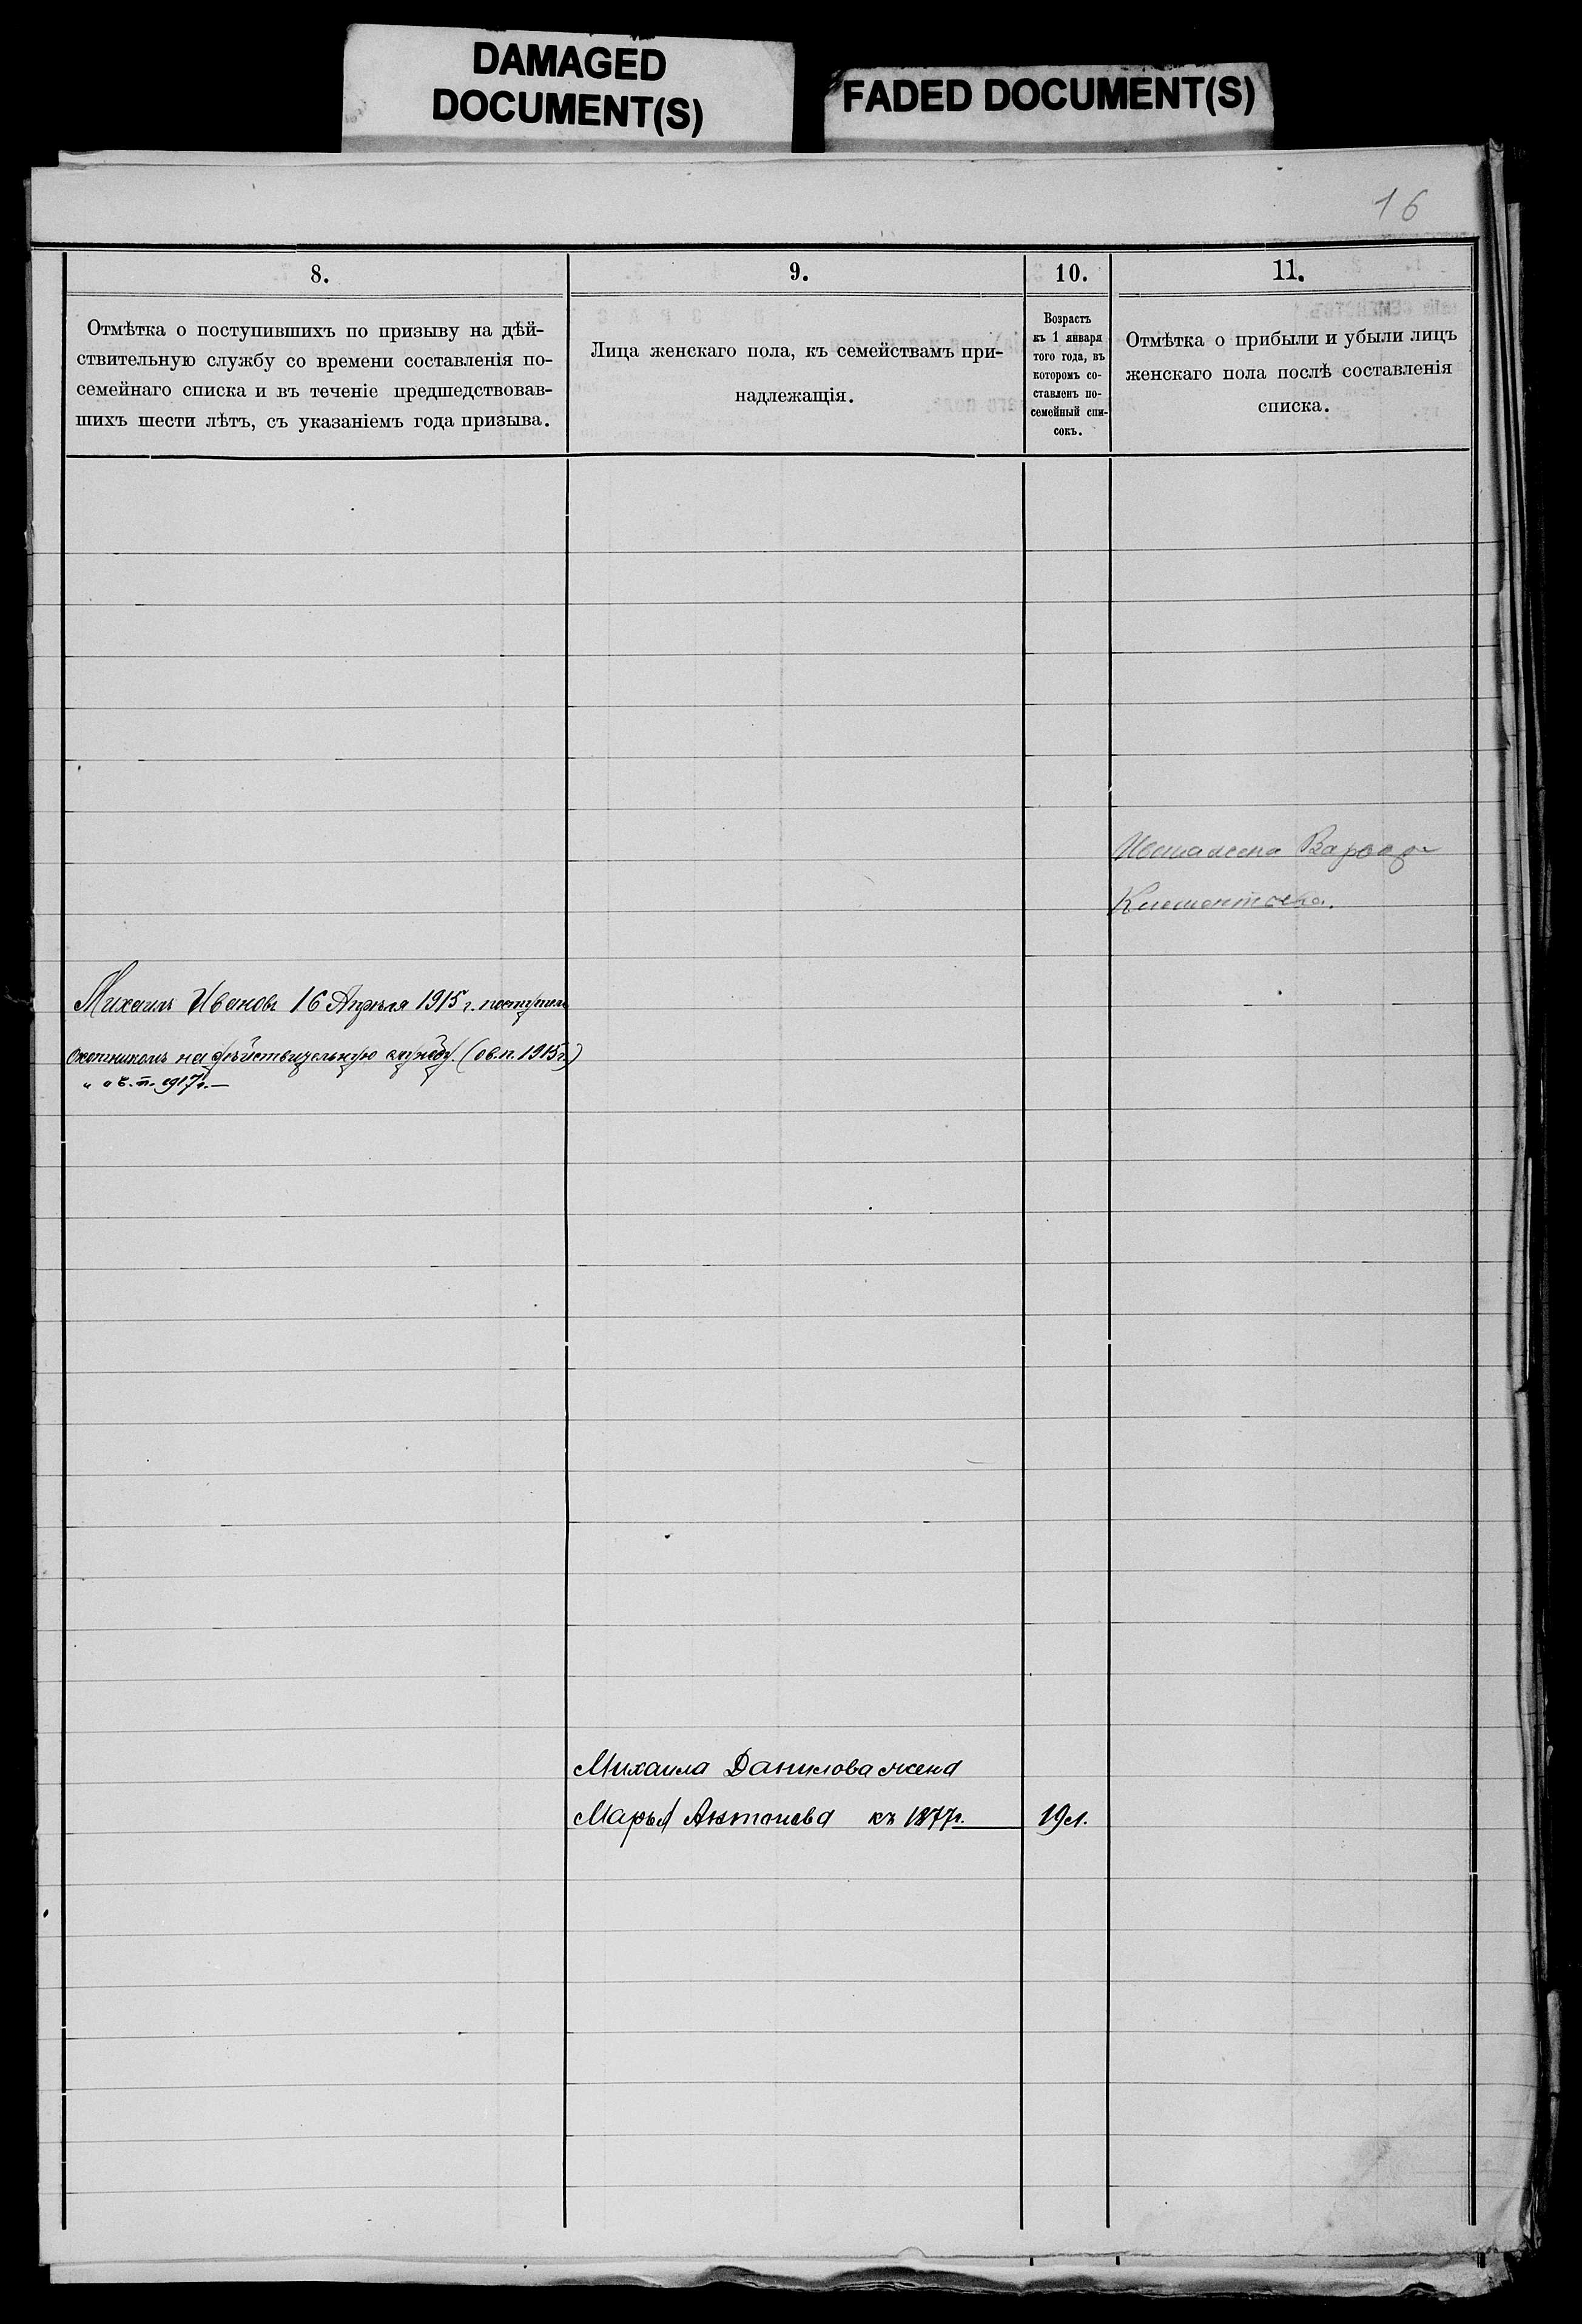 DAMAGED
DOCUMENT(S)
FADED DOCUMENT(S)
16
8.
Отмѣтка о поступившихъ по призыву на дѣй-
ствительную службу со времени составленія по-
семейнаго списка и въ теченіе предшедствовав-
шихъ шести лѣтъ, съ указаніемъ года призыва.
9.
Лица женскаго пола, къ семействамъ при-
надлежащія.
10.
Возрастъ
къ 1 января
того года, въ
которомъ со-
ставленъ по-
семейный спи-
сокъ.
11.
Отмѣтка о прибыли и убыли лицъ
женскаго пола послѣ составленія
списка.
Михаилъ Ивановъ 16 Апрѣля 1915 г. поступилъ
Охотникомъ на дѣйствительную службу. (об.п. 1915г.)
" 1917г.—
Михаила Данилова жена
Марья Антонова къ 1877г.
19 л.